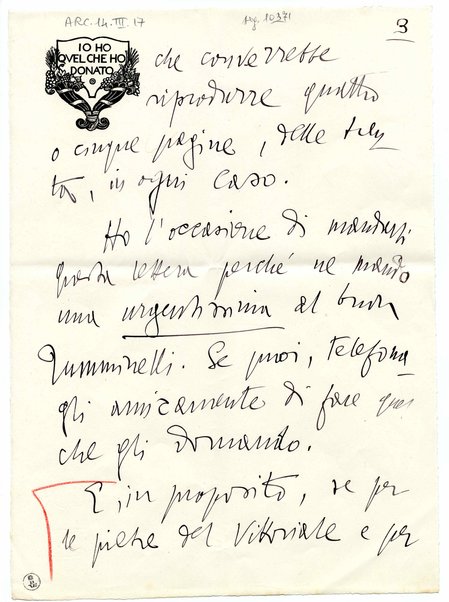 ARC. 14. III. 17
3
IO HO
QVEL CHE HO
DONATO
che converrebbe
riprodurre quattro
o cinque pagine, delle
in ogni caso.
Ho l'occasione di mandarti
questa lettera perché ne mando
una urgentissima al buon
Zumminelli. Se puoi, telefona
gli amicamente di fare quel
che gli domando.
E, in proposito, se per
le pietre del Vittoriale e per